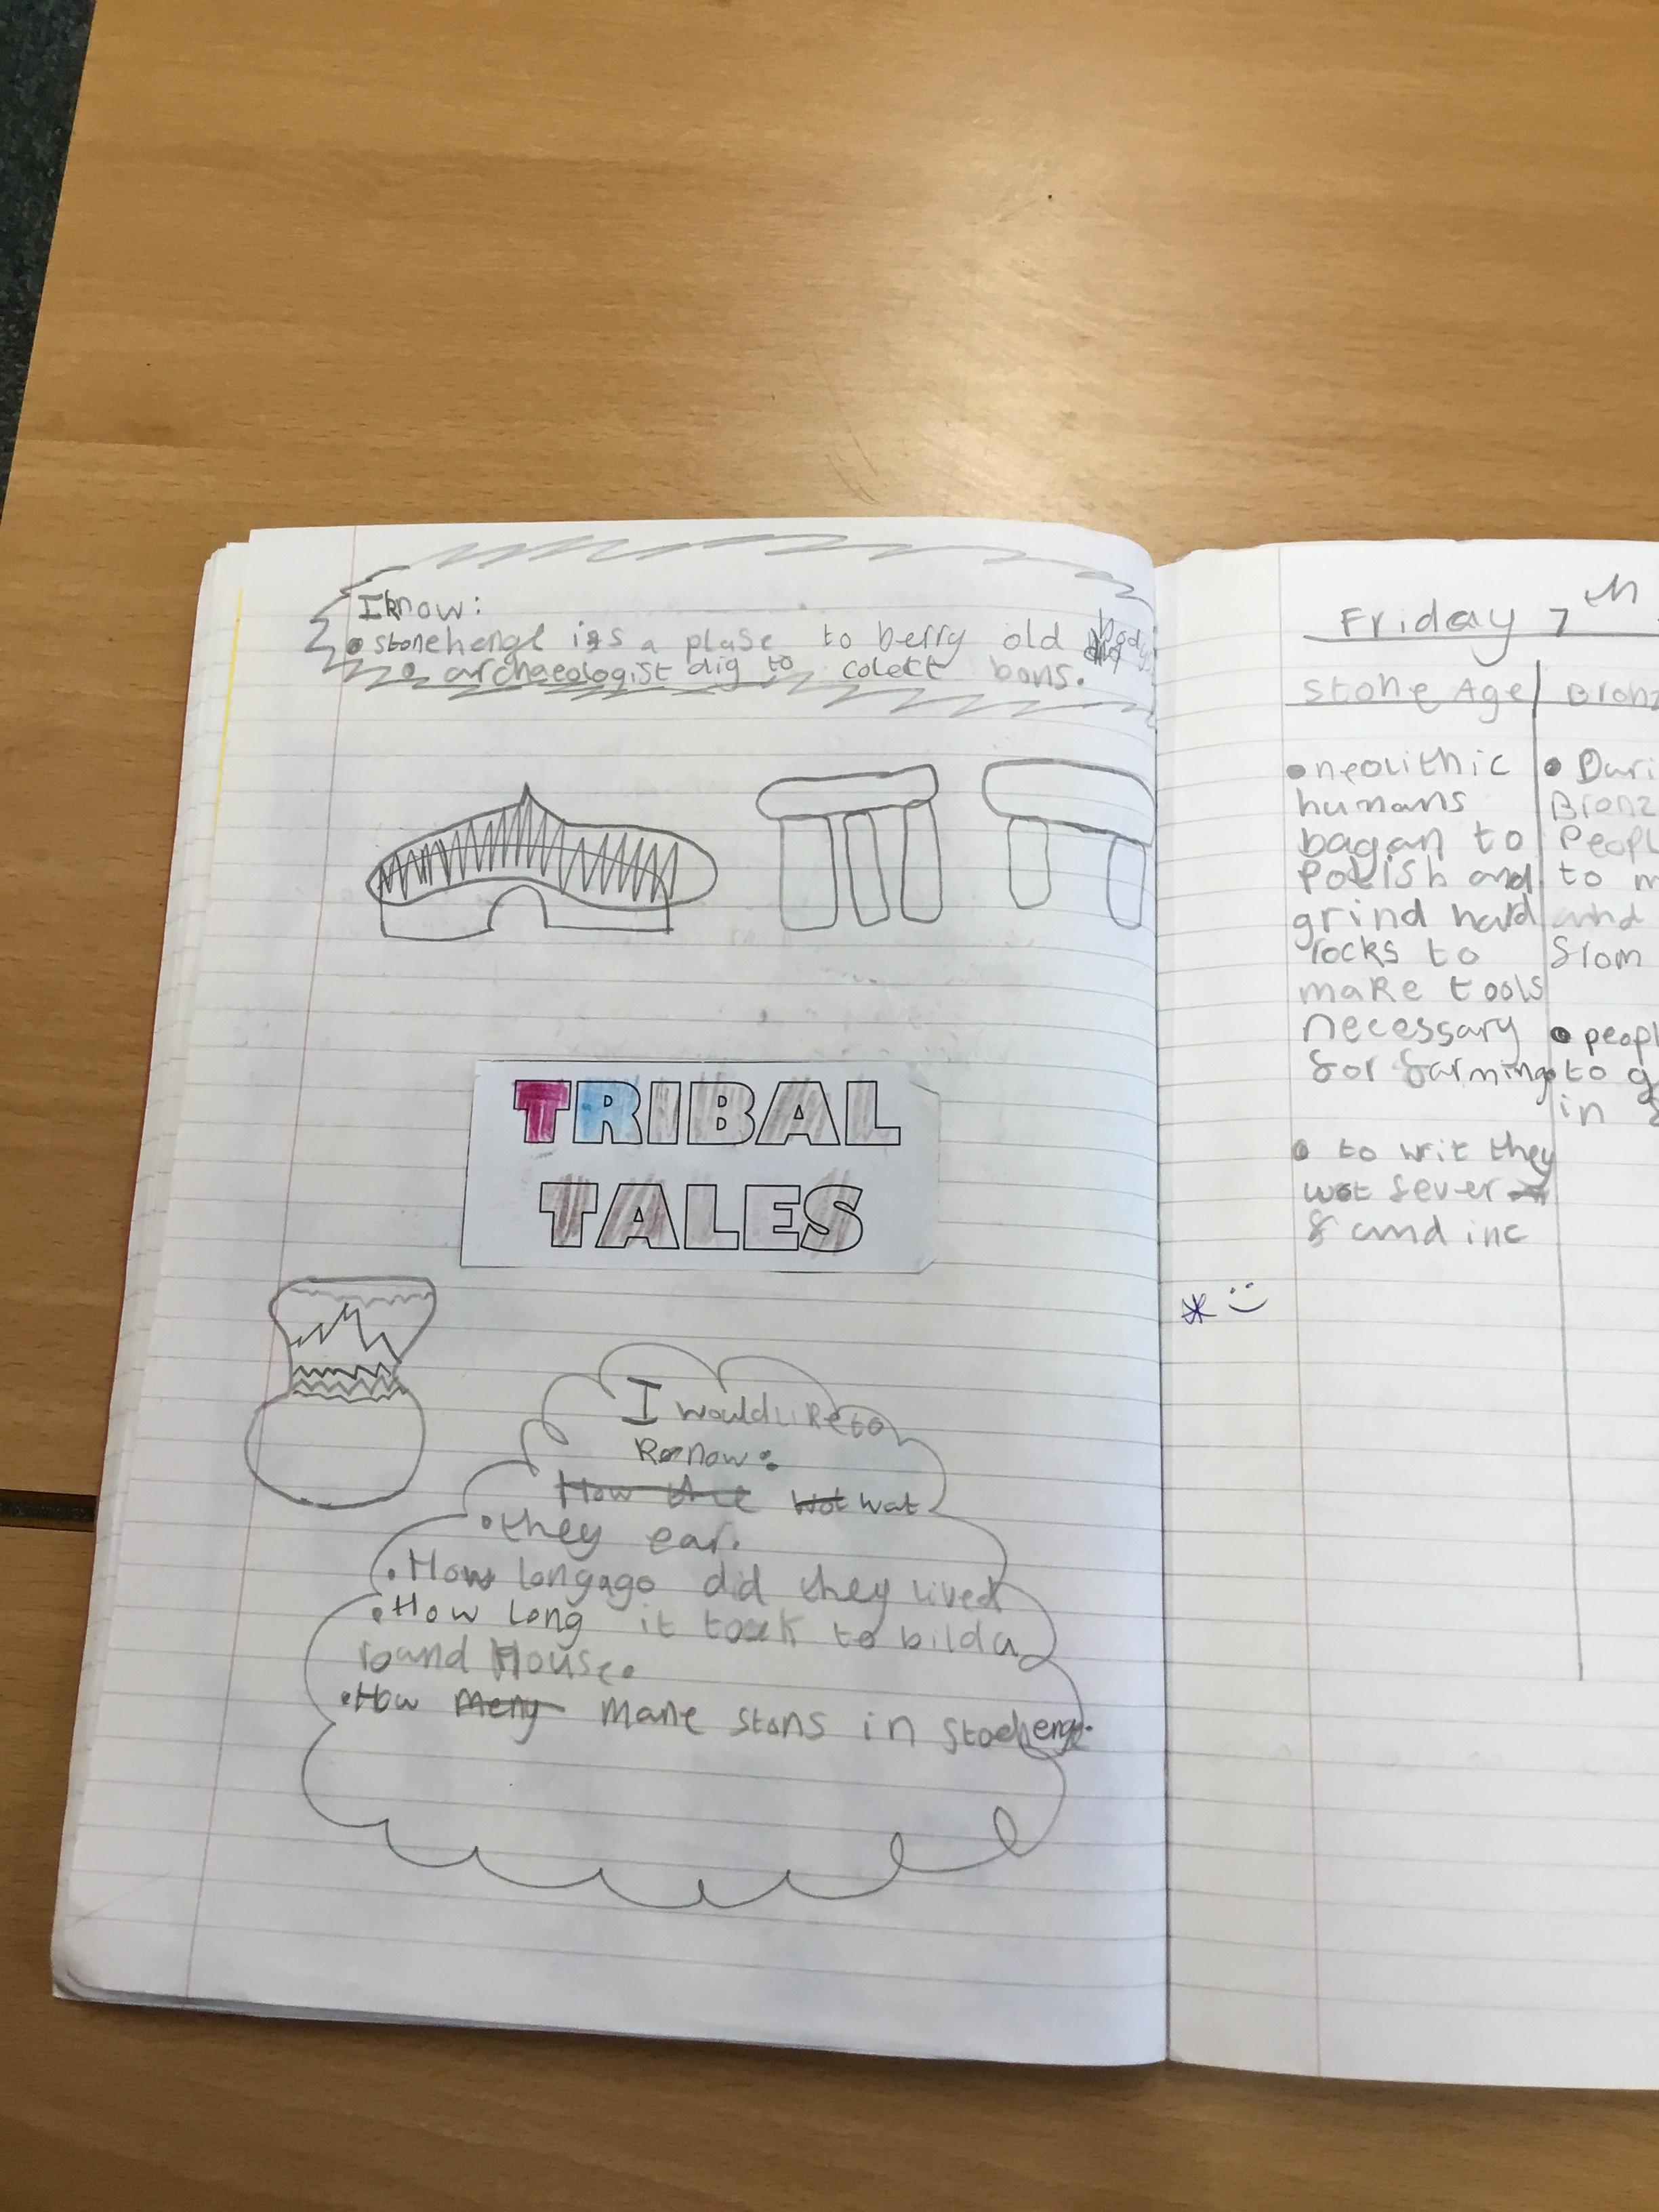 I know:
• stonehenge is a plase to berry old body
• archaeologist dig to colect bons.
TRIBAL
TALES
I would like to
know:
How the Wot wat
• they ear.
• How long ago did they lived
• How long it took to bild a
round House.
• How meny mane stons in stoehenge.
Friday 7th
Stone Age
Bronz
• neolithic
humans
bagan to
Polish and
grind hard
rocks to
make tools
necessary
for farming
• to writ they
wot fever
f and inc
• Duri
Bronz
Peopl
to m
and
from
• peopl
to g
in